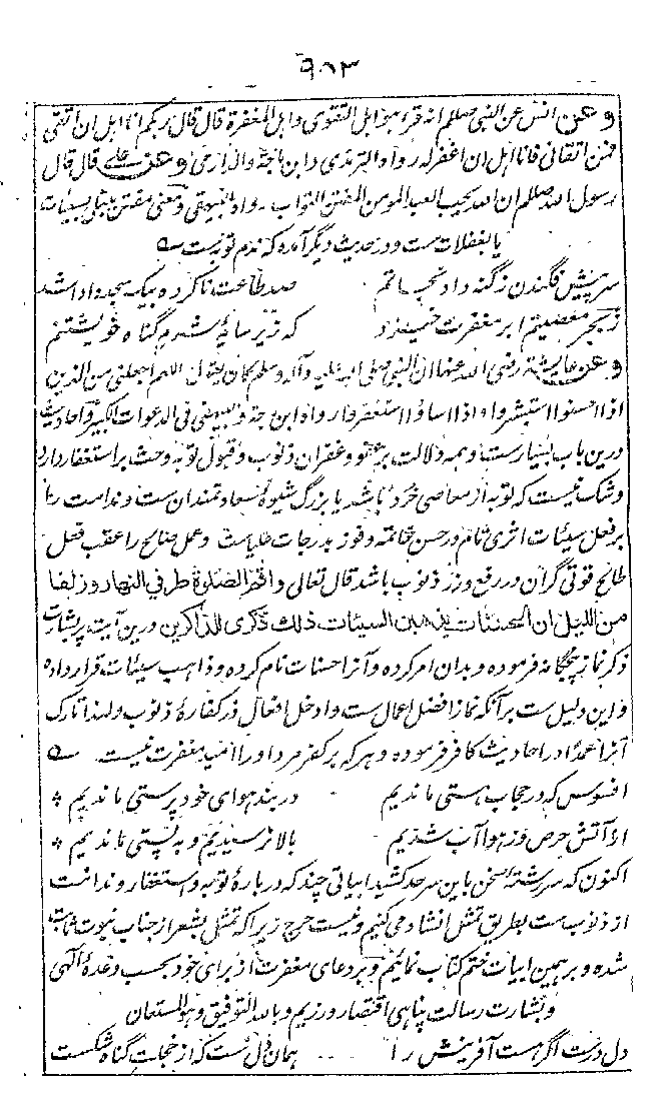 ۹۸۳
و عن انس عن النبی صلعم انه قرا هو اهل التقوی و اهل المغفرة قال قال ربکم انا اهل ان اتقی
فمن اتقانی فانا اهل ان اغفر له رواه الترمذی و ابن ماجة و الدارمی و عن علی قال قال
رسول الله صلعم ان الله یحب العبد المومن المفتن التواب رواه البیهقی و معنی مفتن مبتلی بسیئات
یا بغفلات ست و در حدیث دیگر آمده که ندم توبه ست ـه
سر پیش فگندن ز گنه داد نجاتم صد طاعت ناکرده بیک سجده ادا شد
ز بحر معصیتم ابر مغفرت خیزد که زیر سایهٔ شرم گناه خویشتنم
و عن عایشة رضی الله عنها ان النبی صلی الله علیه و آله و سلم کان یقول اللهم اجعلنی من الذین
اذا احسنوا استبشروا و اذا اساؤا استغفروا رواه ابن ماجة و البیهقی فی الدعوات الکبیر و احادیث
درین باب بسیارست و همه دلالت بر عفو و غفران ذنوب و قبول توبه و حث بر استغفار دارد
و شک نیست که توبه از معاصی خرد باشد یا بزرگ شیوهٔ سعادتمندان ست و ندامت را
بر فعل سیئات اثری تام در حسن خاتمه و فوز بدرجات علیاست و عمل صالح را عقب فعل
طالح قوتی گران در رفع وزر ذنوب باشد قال تعالی و اقم الصلوة طرفی النهار و زلفا
من اللیل ان الحسنات یذهبن السیئات ذلک ذکری للذاکرین درین آیت پر بشارت
ذکر نماز پنجگانه فرموده و بدان امر کرده و آنرا حسنات نام کرده و ذاهب سیئات قرار داده
و این دلیل ست بر آنکه نماز افضل اعمال ست و ادخل افعال در کفارهٔ ذنوب و لهذا تارک
آنرا عمدا در احادیث کافر فرموده و هر که بر کفر مرد او را امید مغفرت نیست ـه
افسوس که در حجاب هستی ماندیم در بند هوای خود پرستی ماندیم *
از آتش حرص وز هوا آب شدیم بالا نرسیدیم و به پستی ماندیم *
اکنون که سررشتهٔ سخن باین سرحد کشید ابیاتی چند که دربارهٔ توبه و استغفار و ندامت
از ذنوب ست بطریق تمثل انشاد می کنیم و نیست حرج زیرا که تمثل بشعر از جناب نبوت ثابت
شده و بر همین ابیات ختم کتاب نمائیم و بر دعای مغفرت از برای خود بحسب وعدهٔ الهی
و بشارت رسالت پناهی اقتصار ورزیم و بالله التوفیق و هو المستعان
دل درست اگر هست آفرینش را همان دل ست که از خجلت گناه شکست